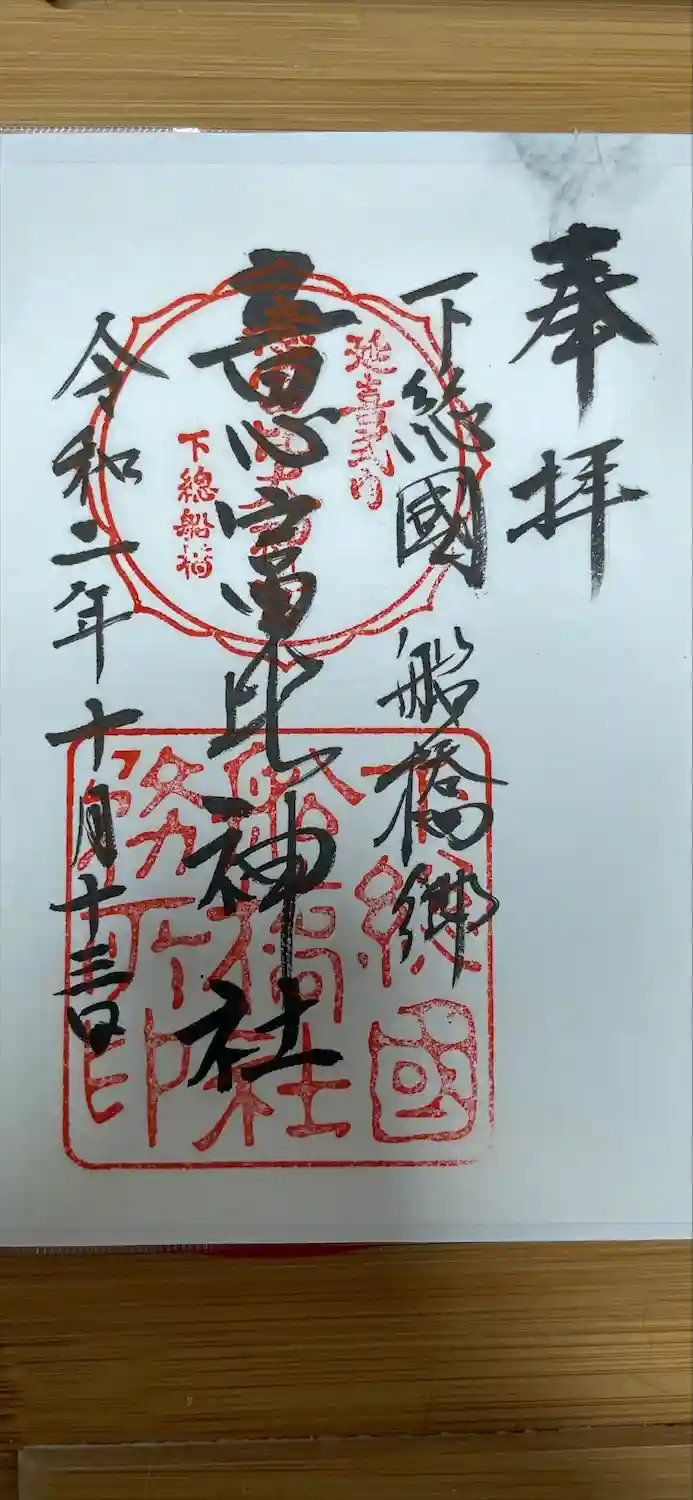 奉拝
下総國 船橋郷
延喜式内
意富比神社
下總船橋
令和二年十月十三日
下總國
船橋社
務所印